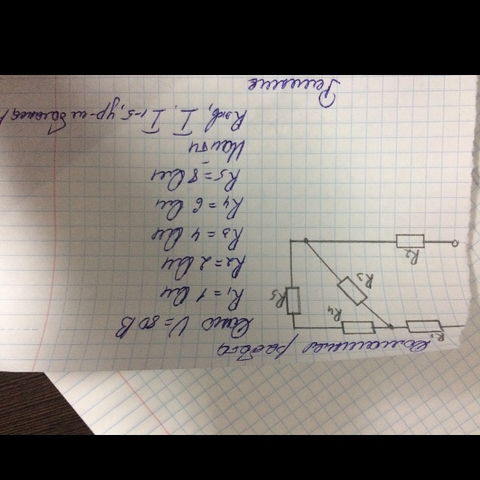 Домашняя работа
Дано U=80 В
R1 = 1 Ом
R2 = 2 Ом
R3 = 4 Ом
R4 = 6 Ом
R5 = 8 Ом
Найти
Rэкв, I, I1-5, ур-ие баланса
Решение
R4
R3
R5
R2